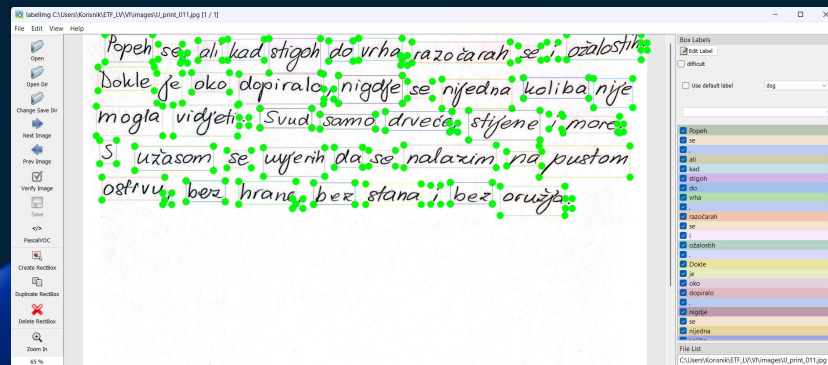 labelImg C:\Users\Korisnik\ETF_LV\VI\images\IJ_print_011.jpg [1 / 1]
File Edit View Help
Open
Open Dir
Change Save Dir
Next Image
Prev Image
Verify Image
Save
</>
PascalVOC
Create RectBox
Duplicate RectBox
Delete RectBox
Zoom In
65 %
Popeh se, ali kad stigoh do vrha, razočarah se i ožalostih.
Dokle je oko dopiralo, nigdje se nijedna koliba nije
mogla vidjeti. Svud samo drveće, stijene i more.
S užasom se uvjerih da se nalazim na pustom
ostrvu, bez hrane, bez stana i bez oružja.
Box Labels
Edit Label
difficult
Use default label dog
Popeh
se
,
ali
kad
stigoh
do
vrha
,
razočarah
se
i
ožalostih
.
Dokle
je
oko
dopiralo
,
nigdje
se
nijedna
File List
C:\Users\Korisnik\ETF_LV\VI\images\IJ_print_011.jpg